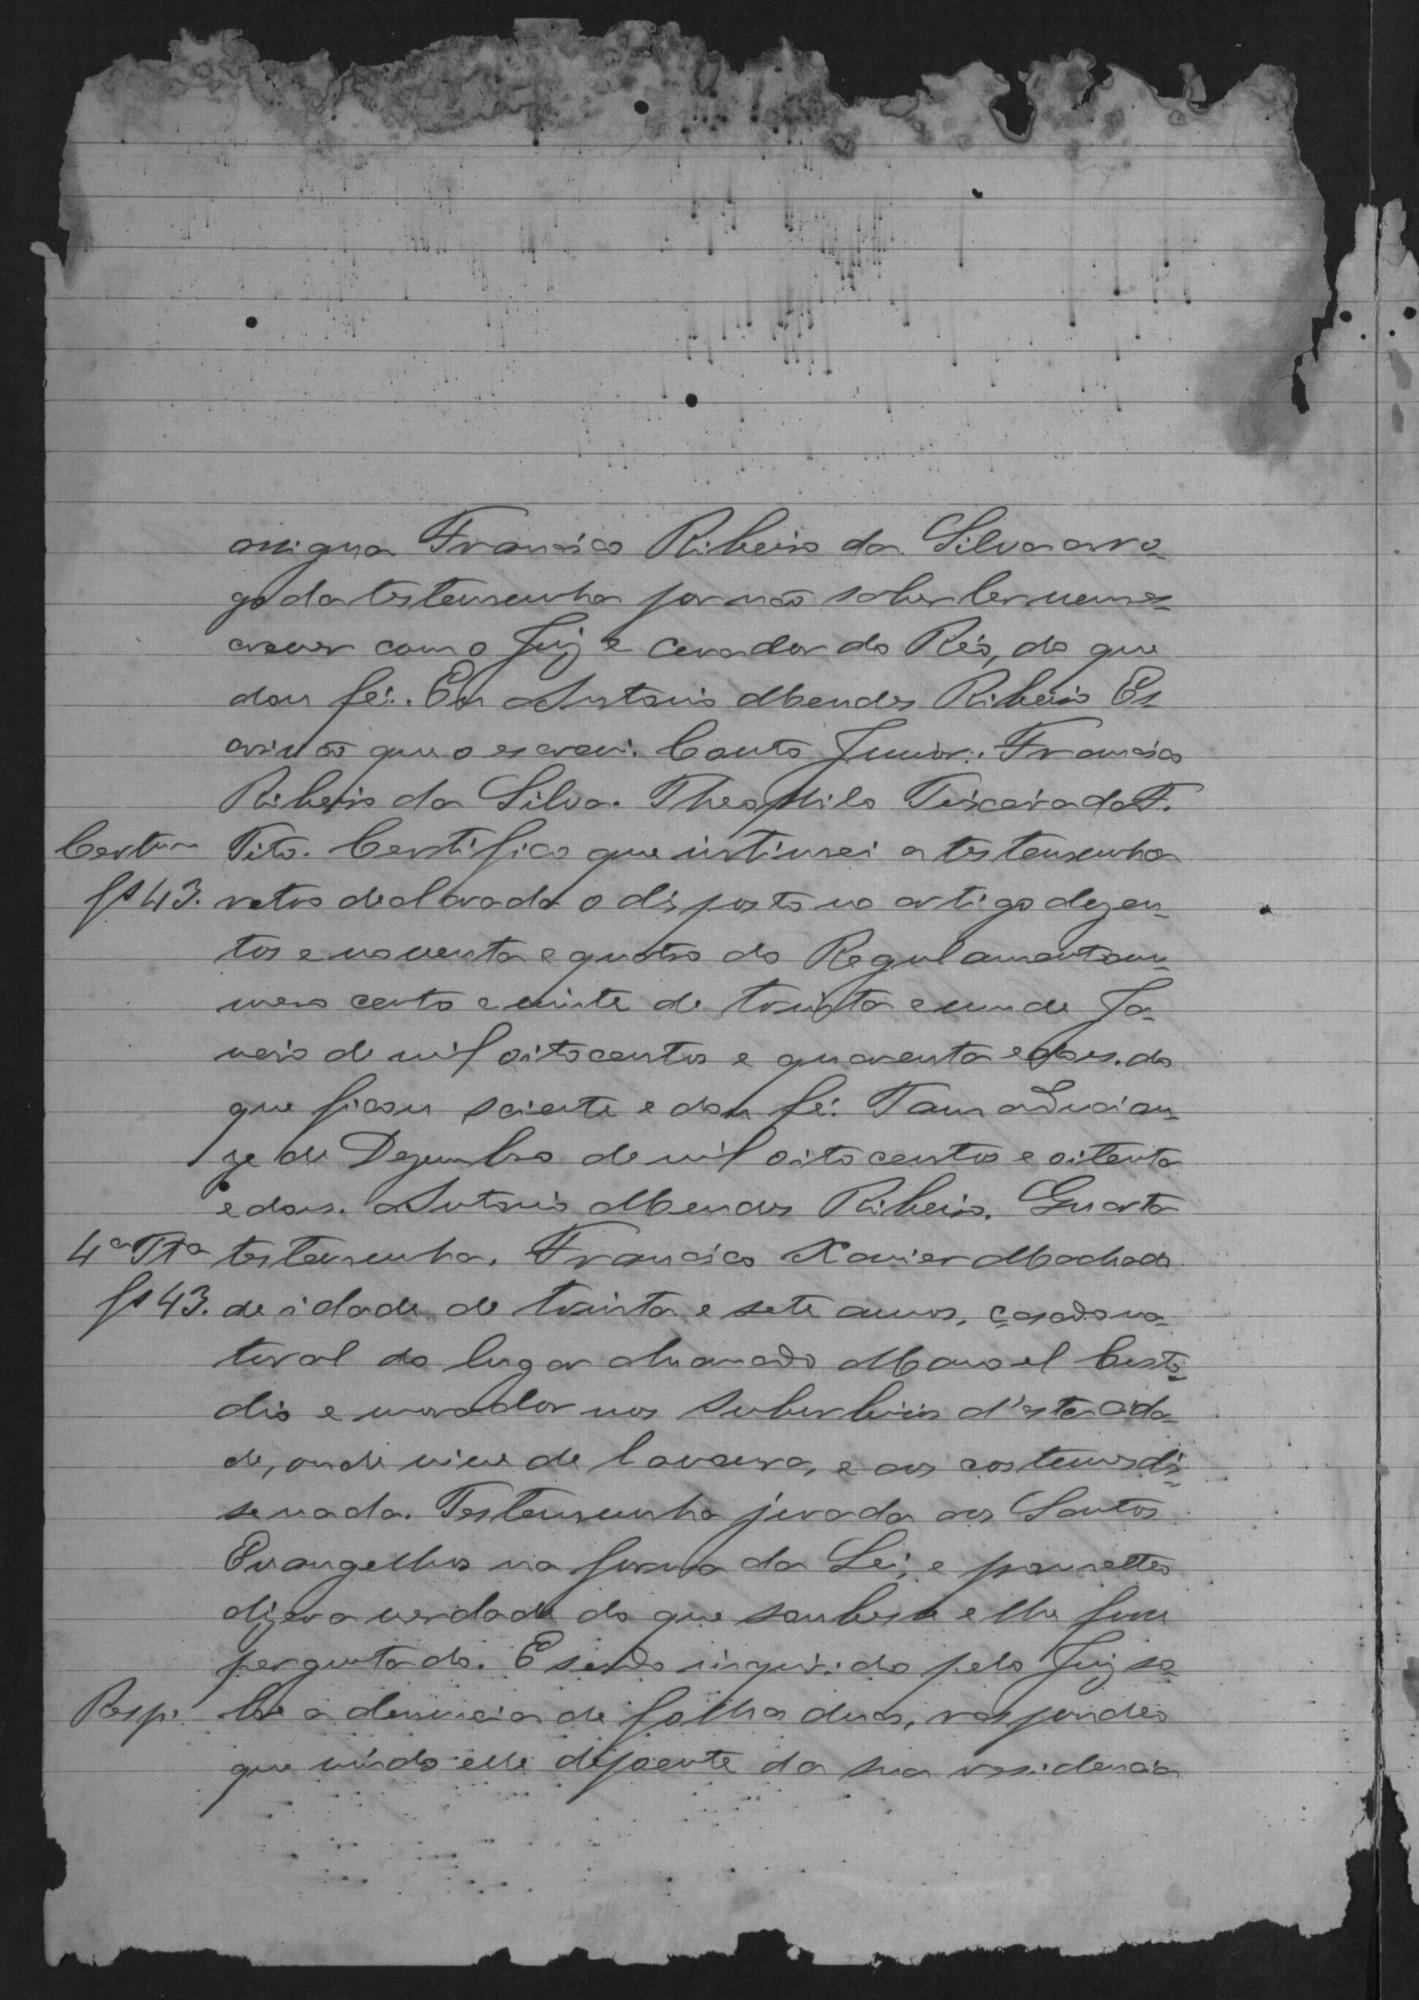 assigna Francisco Ribeiro da Silva a ro-
go da testemunha por não saber ler nem es-
crever com o Juiz e Curador do Réo, do que
dou fé. Eu Antonio Mendes Ribeiro Es
crivão que o escrevi. Couto Junior. Francisco
Ribeiro da Silva. Theophilo F.
Certam Tito. Certifico que intimei a testemunha
fs 43. retro declarada o disposto no artigo dezen-
tos e noventa e quatro do Regulamento nu-
mero cento e vinte de trinta e um de Ja-
neiro de mil oitocentos e quarenta e dois. do
que ficou sciente e dou fé.
ze de Dezembro de mil oitocentos e oitenta
e dois. Antonio Mendes Ribeiro. Quarta
4ª Tta testemunha. Francisco Xavier Machado
fs 43. de idade de trinta e sete annos, casado na-
tural do lugar chamado Manoel Custo-
dio e morador nos suburbios d'esta cida-
de, onde vive de lavoura, e aos costumes dis-
se nada. Testemunha jurada aos Santos
Evangelhos na forma da Lei, e prometteo
dizer a verdade do que soubesse e lhe fosse
perguntado. E sendo inquirido pelo Juiz so-
Resp. bre a denuncia de folha duas, respondeo
que vindo elle depoente da sua residencia